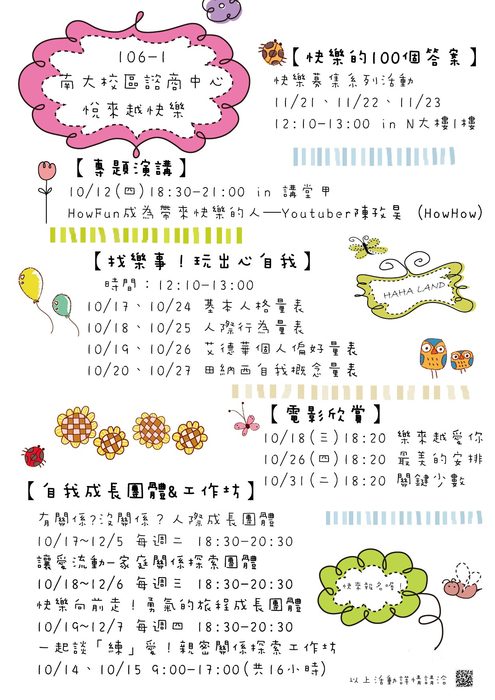 106-1
南大校區諮商中心
悅來越快樂
【快樂的100個答案】
快樂募集系列活動
11/21、11/22、11/23
12:10-13:00 in N大樓1樓
【專題演講】
10/12(四)18:30-21:00 in 講堂甲
HowFun成為帶來快樂的人—Youtuber陳孜昊 (HowHow)
【找樂事!玩出心自我】
時間:12:10-13:00
10/17、10/24 基本人格量表
10/18、10/25 人際行為量表
10/19、10/26 艾德華個人偏好量表
10/20、10/27 田納西自我概念量表
HAHA LAND
【電影欣賞】
10/18(三)18:20 樂來越愛你
10/26(四)18:20 最美的安排
10/31(二)18:20 關鍵少數
【自我成長團體&工作坊】
有關係?沒關係?人際成長團體
10/17~12/5 每週二 18:30-20:30
讓愛流動-家庭關係探索團體
10/18~12/6 每週三 18:30-20:30
快樂向前走!勇氣的旅程成長團體
10/19~12/7 每週四 18:30-20:30
一起談「練」愛!親密關係探索工作坊
10/14、10/15 9:00-17:00(共16小時)
快來報名唷!
以上活動詳情請洽